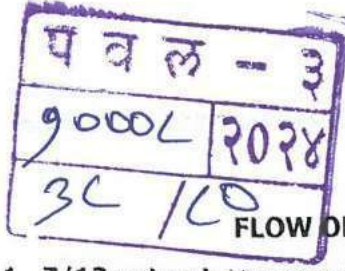 प व ल - ३
१०००८ २०२४
३८ / ८०
FLOW OF
1. 7/12